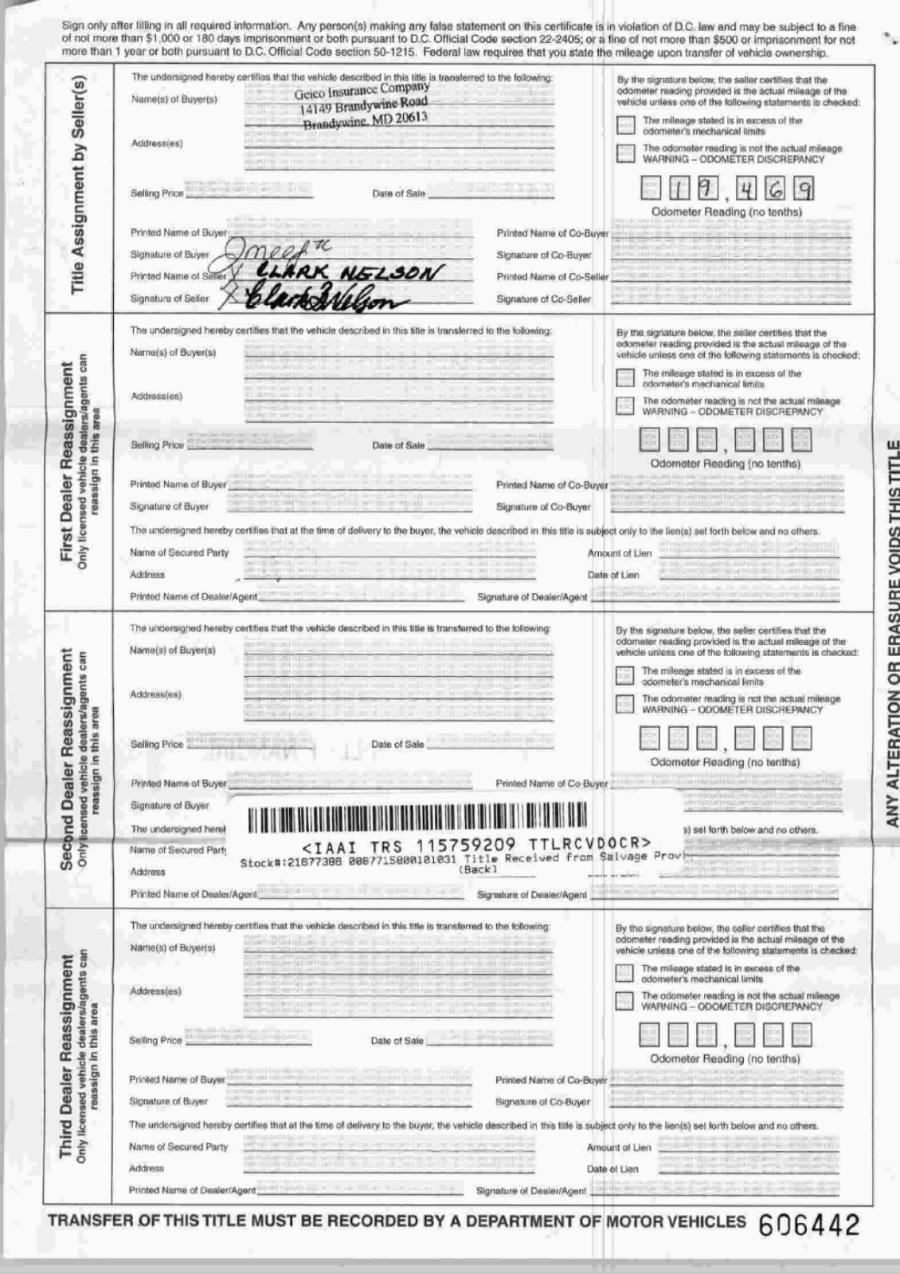 Sign only after filling in all required information. Any person(s) making any false statement on this certificate is in violation of D.C. law and may be subject to a fine
of not more than $1,000 or 180 days imprisonment or both pursuant to D.C. Official Code section 22-2405; or a fine of not more than $500 or imprisonment for not
more than 1 year or both pursuant to D.C. Official Code section 50-1215. Federal law requires that you state the mileage upon transfer of vehicle ownership.
Title Assignment by Seller(s)
The undersigned hereby certifies that the vehicle described in this title is transferred to the following:
Name(s) of Buyer(s)
Geico Insurance Company
14149 Brandywine Road
Brandywine, MD 20613
Address(es)
Selling Price
Date of Sale
By the signature below, the seller certifies that the
odometer reading provided is the actual mileage of the
vehicle unless one of the following statements is checked:
The mileage stated is in excess of the
odometer's mechanical limits
The odometer reading is not the actual mileage
WARNING – ODOMETER DISCREPANCY
19,469
Odometer Reading (no tenths)
Printed Name of Buyer
Printed Name of Co-Buyer
Signature of Buyer
Signature of Co-Buyer
Printed Name of Seller CLARK NELSON
Printed Name of Co-Seller
Signature of Seller Clark Nelson
Signature of Co-Seller
First Dealer Reassignment
Only licensed vehicle dealers/agents can
reassign in this area
The undersigned hereby certifies that the vehicle described in this title is transferred to the following:
Name(s) of Buyer(s)
Address(es)
Selling Price
Date of Sale
By the signature below, the seller certifies that the
odometer reading provided is the actual mileage of the
vehicle unless one of the following statements is checked:
The mileage stated is in excess of the
odometer's mechanical limits
The odometer reading is not the actual mileage
WARNING – ODOMETER DISCREPANCY
Odometer Reading (no tenths)
Printed Name of Buyer
Printed Name of Co-Buyer
Signature of Buyer
Signature of Co-Buyer
The undersigned hereby certifies that at the time of delivery to the buyer, the vehicle described in this title is subject only to the lien(s) set forth below and no others.
Name of Secured Party
Amount of Lien
Address
Date of Lien
Printed Name of Dealer/Agent
Signature of Dealer/Agent
Second Dealer Reassignment
Only licensed vehicle dealers/agents can
reassign in this area
The undersigned hereby certifies that the vehicle described in this title is transferred to the following:
Name(s) of Buyer(s)
Address(es)
Selling Price
Date of Sale
By the signature below, the seller certifies that the
odometer reading provided is the actual mileage of the
vehicle unless one of the following statements is checked:
The mileage stated is in excess of the
odometer's mechanical limits
The odometer reading is not the actual mileage
WARNING – ODOMETER DISCREPANCY
Odometer Reading (no tenths)
Printed Name of Buyer
Printed Name of Co-Buyer
Signature of Buyer
The undersigned herel
s) set forth below and no others.
<IAAI TRS 115759209 TTLRCVDOCR>
Name of Secured Part
Stock#:21877386 0087715800101031 Title Received from Salvage Prov
Address
(Back)
Printed Name of Dealer/Agent
Signature of Dealer/Agent
Third Dealer Reassignment
Only licensed vehicle dealers/agents can
reassign in this area
The undersigned hereby certifies that the vehicle described in this title is transferred to the following:
Name(s) of Buyer(s)
Address(es)
Selling Price
Date of Sale
By the signature below, the seller certifies that the
odometer reading provided is the actual mileage of the
vehicle unless one of the following statements is checked:
The mileage stated is in excess of the
odometer's mechanical limits
The odometer reading is not the actual mileage
WARNING – ODOMETER DISCREPANCY
Odometer Reading (no tenths)
Printed Name of Buyer
Printed Name of Co-Buyer
Signature of Buyer
Signature of Co-Buyer
The undersigned hereby certifies that at the time of delivery to the buyer, the vehicle described in this title is subject only to the lien(s) set forth below and no others.
Name of Secured Party
Amount of Lien
Address
Date of Lien
Printed Name of Dealer/Agent
Signature of Dealer/Agent
ANY ALTERATION OR ERASURE VOIDS THIS TITLE
TRANSFER OF THIS TITLE MUST BE RECORDED BY A DEPARTMENT OF MOTOR VEHICLES 606442